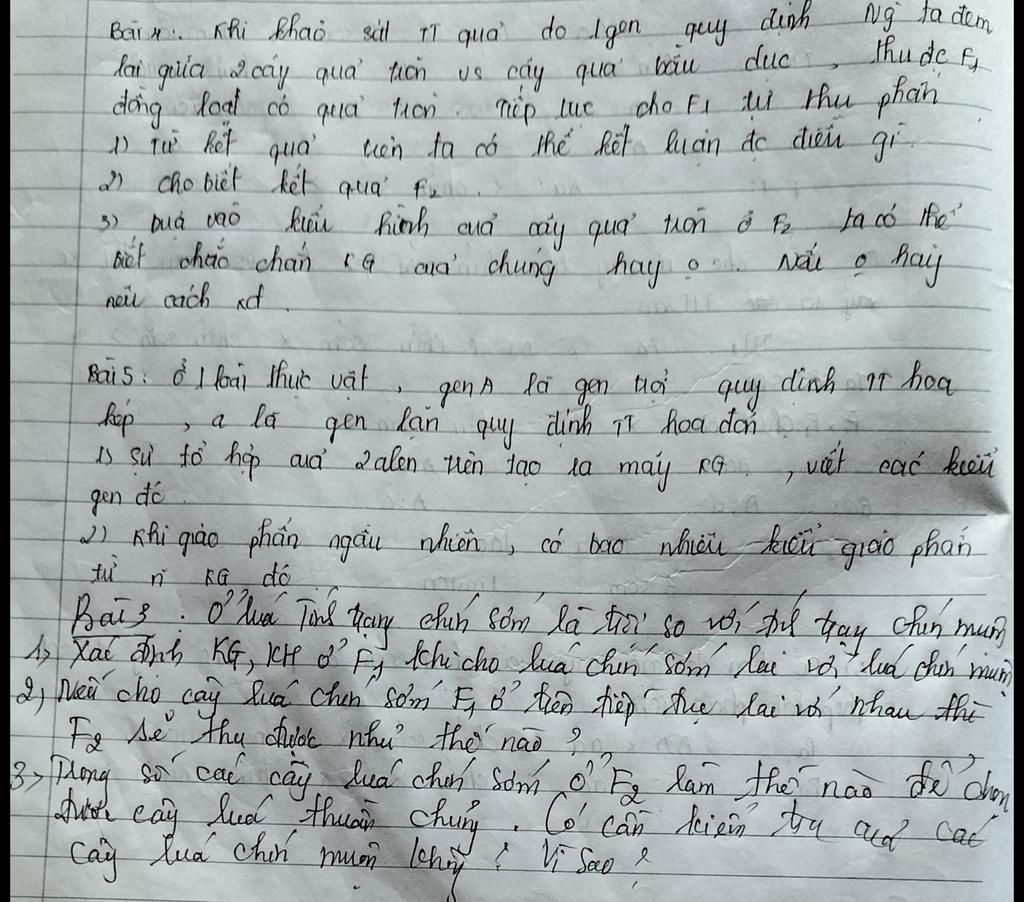 Bài 4: Khi khảo sát TT quả do 1gen quy định Ng ta đem
lai giữa 2 cây quả tròn vs cây quả bầu dục, thu đc F1
đồng loạt có quả tròn. Tiếp tục cho F1 tự thu phấn
1) Từ kết quả trên ta có thể kết luận đc điều gì
2) cho biết kết quả F2
3) Dựa vào kiểu hình của cây quả tròn ở F2 ta có thể
biết chắc chắn KG của chúng hay o. Nếu o hãy
nêu cách xđ.
Bài 5: Ở 1 loài thực vật, gen A là gen trội quy định TT hoa
kép, a là gen lặn quy định TT hoa đơn
1) sự tổ hợp của 2alen trên tạo ra mấy KG, viết các kiểu
gen đó
2) Khi giao phấn ngẫu nhiên, có bao nhiêu kiểu giao phấn
từ n KG đó
Bài 3. Ở lúa Tính trạng chín sớm là trội so với tính trạng chín muộn
1, Xác định KG, KH ở F1 khi cho lúa chín sớm lai với lúa chín muộn
2, Nếu cho cây lúa chín sớm F1 ở trên tiếp tục lai với nhau thì
F2 sẽ thu được như thế nào?
3, Trong số các cây lúa chín sớm ở F2 làm thế nào để chọn
được cây lúa thuần chủng. Có cần kiểm tra các
cây lúa chín muộn không? Vì sao?